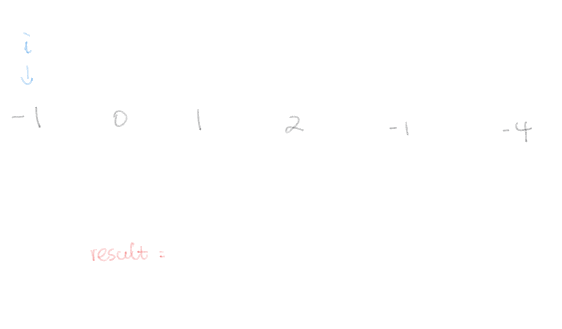 i
-1 0 1 2 -1 -4
result =